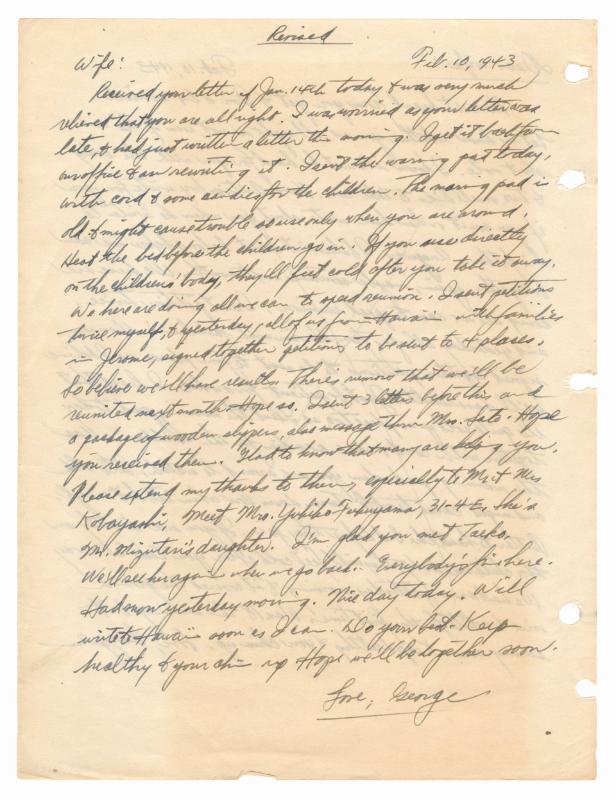 Revised
Wife: Feb. 10, 1943
Received your letter of Jan. 14th today & was very much
relieved that you are all right. I was worried as your letter was
late, & had just written a letter this morning. I get it back from
our office & am rewriting it. I sent the warming pad today,
with cord & some candies for the children. The warming pad is
old & might cause trouble so use only when you are around.
Heat the bed before the children go in. If you use directly
on the childrens' body, they'll feel cold after you take it away.
We here are doing all we can to speed reunion. I sent petitions
twice myself, & yesterday, all of us from Hawaii with families
in Jerome, signed together petitions to be sent to 4 places.
So believe we'll have results. There's rumors that we'll be
reunited next month. Hope so. I sent 3 letters before this and
a package of wooden slippers, also message thru Mrs. Sato. Hope
you received them. Glad to know that many are helping you.
Please extend my thanks to them, especially to Mr. & Mrs
Kobayashi, Meet Mrs. Yukiko Fukuyama, 31-4E, She's
Mr. Mizutari's daughter. I'm glad you met Taeko.
We'll see her again when we go back. Everybody's fine here.
Had snow yesterday morning. Nice day today. Will
write to Hawaii soon as I can. Do your best. Keep
healthy & your chin up Hope we'll be together soon.
Love, George